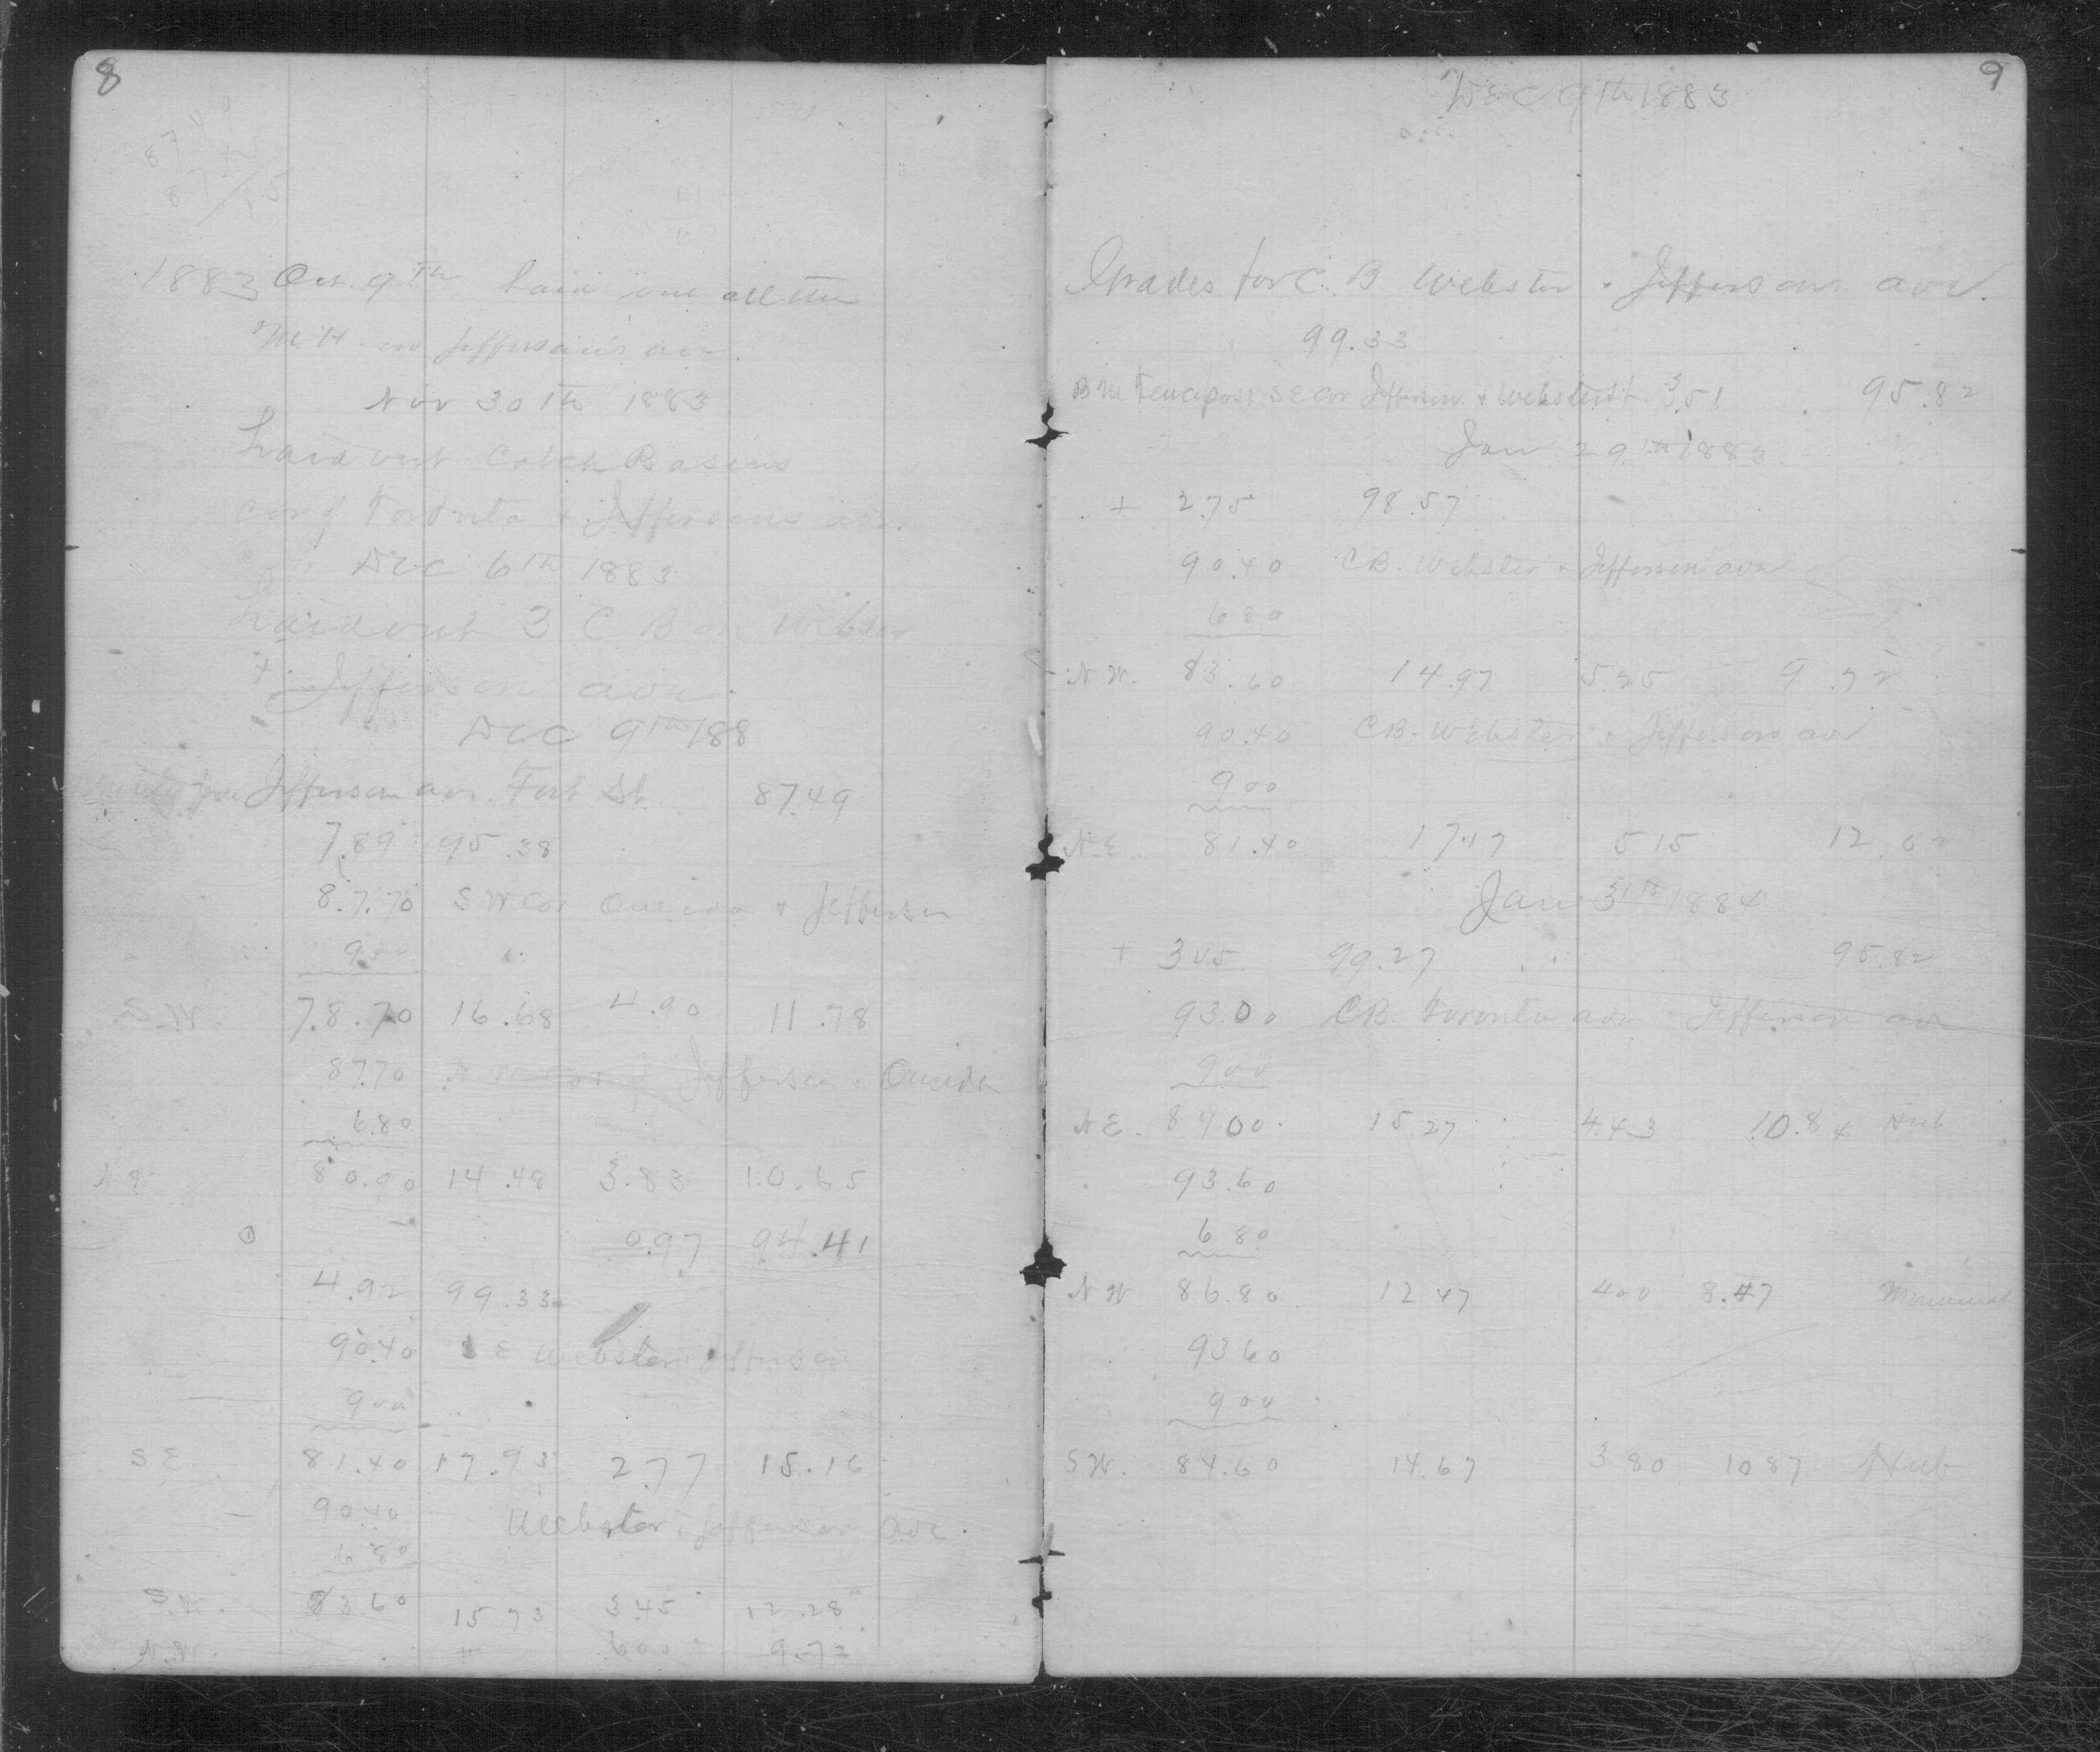 8
1883 Oct. 9th Laid out all the
M.H. on Jefferson's ave.
Nov 30th 1883
Laid out Catch Basins
cor of Toronto & Jeffersons ave
Dec 6th 1883
Laid out 3 C B on Webster
+ Jefferson ave.
Dec 9th 188
Jefferson ave. Fort St. 87.49
7.89 95.38
87.70 S W Cor Oneida & Jefferson
900 "
S.W. 78.70 16.68 4.90 11.78
87.70 N W Cor of Jefferson & Oneida
6.80
N W 80.90 14.48 3.83 10.65
0 0.97 94.41
4.92 99.33
90.40 S E Webster Jefferson
900
S E 81.40 17.93 2.77 15.16
90.40 Webster & Jefferson ave.
6 80
S.W. 83 60 15 73 3.45 12.28
N.W. " 600 9.72
9
DEC 9th 1883
Grades for C. B Webster & Jefferson ave.
99.33
B M Fence post S E cor Jefferson & Webster St. 3.51 95.82
Jan 29th 1883
+ 2.75 98.57
90.40 C.B. Webster & Jefferson ave
680
N W. 83.60 14.97 5.25 9.72
90.40 C.B. Webster & Jefferson ave
900
N.E. 81.40 17.17 5 15 12.02
Jan 31th 1884
+ 345 99.27 95.82
93.00 C.B. Toronto ave & Jefferson ave
900
N E. 84.00 15.27 4.43 10.84 Hub
93.60
6 80
N W 86.80 12 47 400 8.47
93 60
900
S W. 84.60 14.67 3 80 10 87 Hub